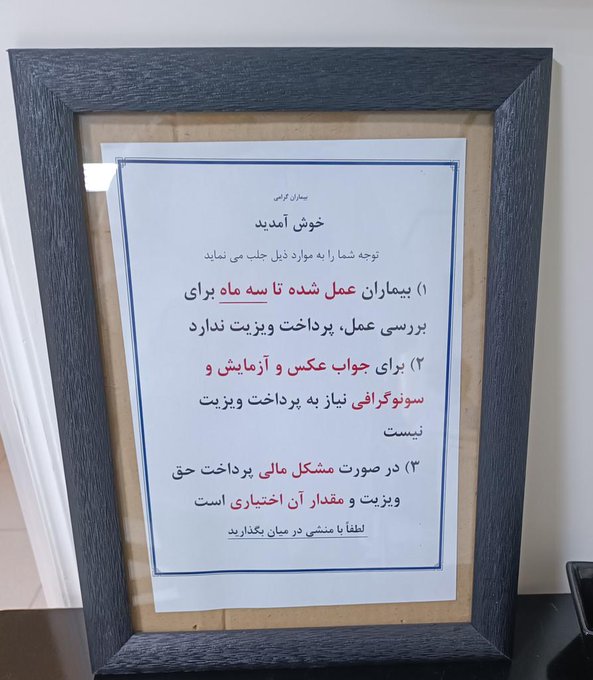 بیماران گرامی
خوش آمدید
توجه شما را به موارد ذیل جلب می نماید
۱) بیماران عمل شده تا سه ماه برای
بررسی عمل، پرداخت ویزیت ندارد
۲) برای جواب عکس و آزمایش و
سونوگرافی نیاز به پرداخت ویزیت
نیست
۳) در صورت مشکل مالی پرداخت حق
ویزیت و مقدار آن اختیاری است
لطفاً با منشی در میان بگذارید